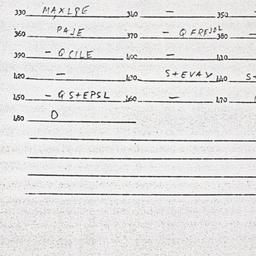 330 MAXLPE 340 — 350
360 PAJE 370 — QFRFJOL 380 —
390 — QCILE 400 — 410
420 — 430 S+EVAV 440 S-
450 — QS+EPSL 460 — 470
480 O